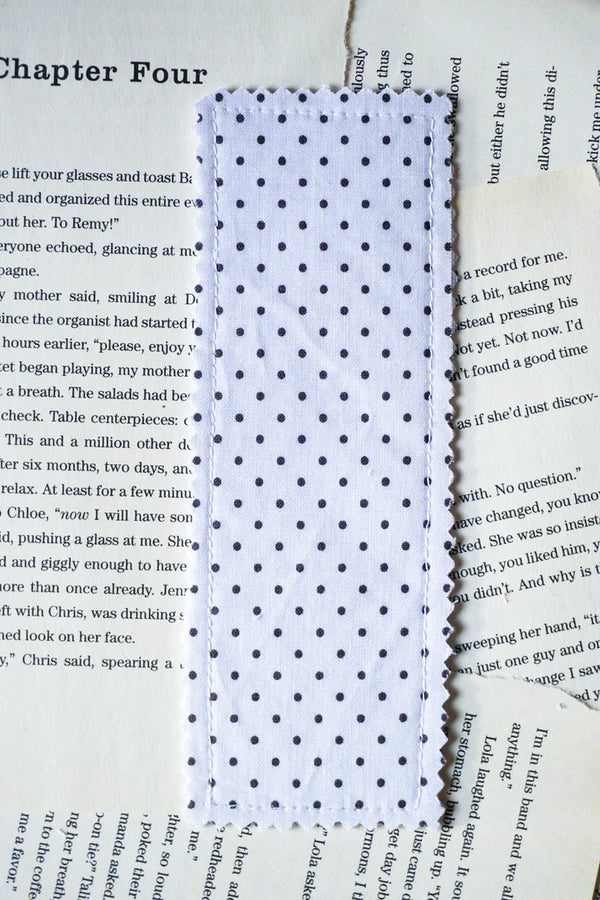 Chapter Four
se lift your glasses and toast Ba
ed and organized this entire ev
out her. To Remy!"
eryone echoed, glancing at me
pagne.
y mother said, smiling at D
since the organist had started t
hours earlier, "please, enjoy y
tet began playing, my mother
t a breath. The salads had be
check. Table centerpieces:
This and a million other d
ter six months, two days, an
relax. At least for a few minu
o Chloe, "now I will have som
id, pushing a glass at me. She
d and giggly enough to have
more than once already. Jenn
eft with Chris, was drinking s
hed look on her face.
y," Chris said, spearing a
ulously
g thus
ned to
swallowed
but either he didn't
allowing this di-
kick me under
a record for me.
k a bit, taking my
stead pressing his
Not yet. Not now. I'd
n't found a good time
as if she'd just discov-
with. No question."
have changed, you know
sked. She was so insist
nough, you liked him, y
ou didn't. And why is t
sweeping her hand, "it
an just one guy and on
hange I saw
ed y
I'm in this band and we all
anything."
Lola laughed again. It sou
her stomach, bubbling up. "Yo
just came o
get day job
mmons, I th
"Lola aske
d, then add
redheaded
me."
hter, so loud
poked their
manda asked.
-on tie?" Tali
ng her breath
n to the coffe
me a favor."